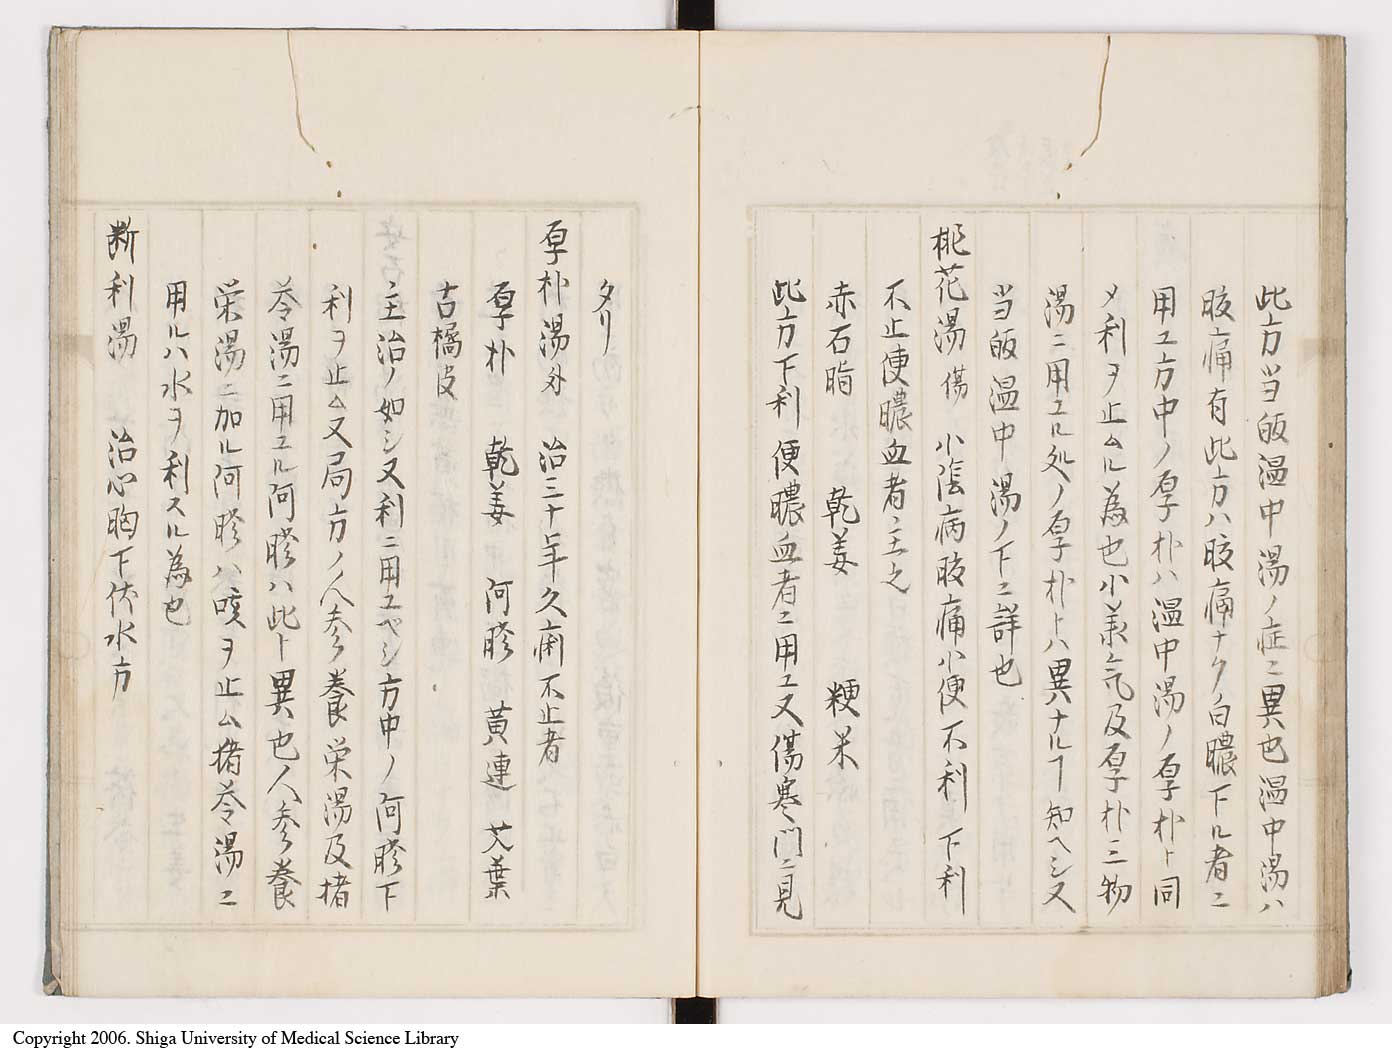 此方当皈温中湯ノ症ニ異也温中湯ハ
腹痛有此方ハ腹痛ナク白膿下ル者ニ
用エ方中ノ厚朴ハ温中湯ノ厚朴ト同
〆利ヲ止ムル為也小羨气及厚朴三物
湯ニ用エル処ノ厚朴トハ異ナルヿ知ヘシ又
当皈温中湯ノ下ニ詳也
桃花湯 傷 小陰病腹痛小便不利下利
不止便膿血者主之
赤石脂 乾姜 粳米
此方下利便膿血者ニ用エ又傷寒門ニ見
タリ
厚朴湯 外 治三十年久痢不止者
厚朴 乾姜 阿膠 黄連 艾葉
古橘皮
主治ノ如シ又利ニ用ユベシ方中ノ阿膠下
利ヲ止ム又局方ノ人参養栄湯及猪
苓湯ニ用エル阿膠ハ此ト異也人参養
栄湯ニ加ル阿膠ハ咳ヲ止ム猪苓湯ニ
用ルハ水ヲ利スル為也
断利湯 治心胸下伏水方
Copyright 2006. Shiga University of Medical Science Library